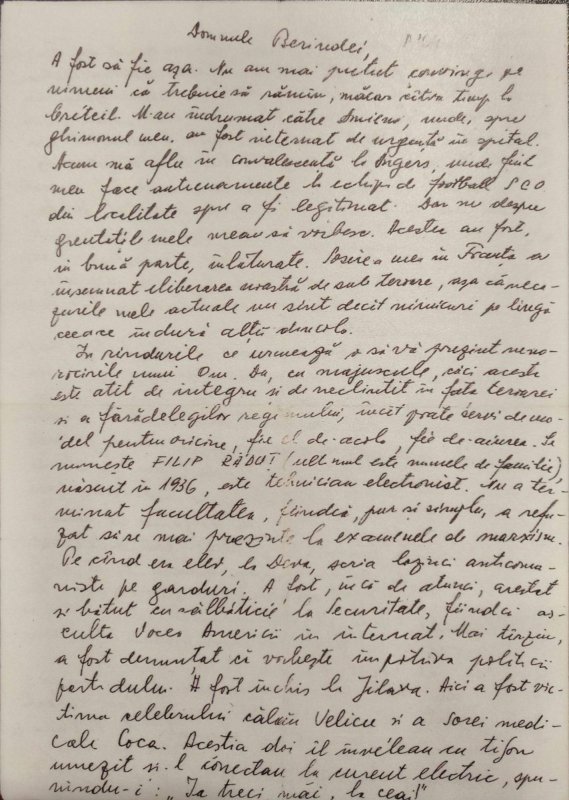 Domnule Berindei,
A fost să fie aşa. Nu am mai putut convinge pe
nimeni că trebuie să rămîn, măcar cîtva timp la
Creteil. M-au îndrumat către Amiens, unde, spre
ghinionul meu, am fost internat de urgenţă în spital.
Acum mă aflu în convalescenţă la Angers, unde fiul
meu face antrenamente la echipa de football S C O
din localitate spre a fi legitimat. Dar nu despre
greutăţile mele vreau să vorbesc. Acestea au fost,
în bună parte, înlăturate. Ieşirea mea în Franţa a
însemnat eliberarea noastră de sub teroare, aşa că neca-
zurile mele actuale nu sînt decît nimicuri pe lîngă
ceeace îndură alţii dincolo.
În rîndurile ce urmează o să vă prezint neno-
rocirile unui Om. Da, cu majuscule, căci acesta
este atît de integru şi de neclintit în faţa teroarei
şi a fărădelegilor regimului, încît poate servi de mo-
del pentru oricine, fie el de-acolo, fie de-aiurea. Se
numeşte FILIP RĂDUŢ (ultimul este numele de familie),
născut în 1936, este tehnician electronist. Nu a ter-
minat facultatea, fiindcă, pur şi simplu, a refu-
zat să se mai prezinte la examenele de marxism.
Pe cînd era elev, la Deva, scria lozinci anticomu-
niste pe garduri. A fost, încă de atunci, arestat
şi bătut cu sălbăticie la Securitate, fiindcă as-
culta Vocea Americii în internat. Mai tîrziu,
a fost denunţat că vorbeşte împotriva politicii
partidului. A fost închis la Jilava. Aici a fost vic-
tima celebrului călău Velicu şi a sorei medi-
cale Coca. Aceştia doi îl înveleau cu tifon
umezit şi-l conectau la curent electric, spu-
nîndu-i: "Ia treci mai, la ceai!"